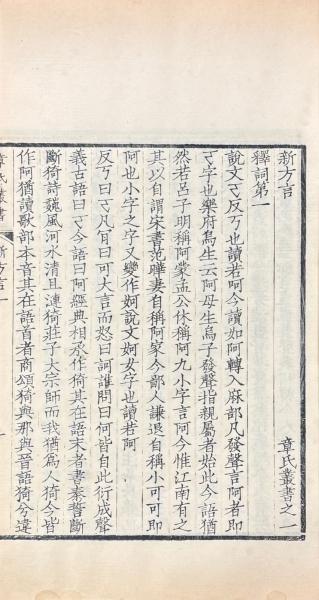 新方言　章氏叢書之一
釋詞第一
說文𠀀反丂也讀若呵今讀如阿轉入麻部凡發聲言阿者即
𠀀字也樂府烏生云阿母生烏子發聲指親屬者始此今語猶
然若呂子明稱阿蒙孟公休稱阿九小字言阿今惟江南有之
其以自謂宋書范曄妻自稱阿家今鄙人謙退自稱小可可即
阿也小字之字又變作妸說文妸女字也讀若阿
反丂曰𠀀凡𠀀曰可大言而怒曰訶誰問曰何皆自此衍成聲
義古語曰𠀀今語曰阿經典相承作猗其在語末者書秦誓斷
斷猗詩魏風河水清且漣猗莊子大宗師而我猶爲人猗今皆
作阿猶讀歌部本音其在語首者商頌猗與那與晉語猗兮違
章氏叢書　新方言一